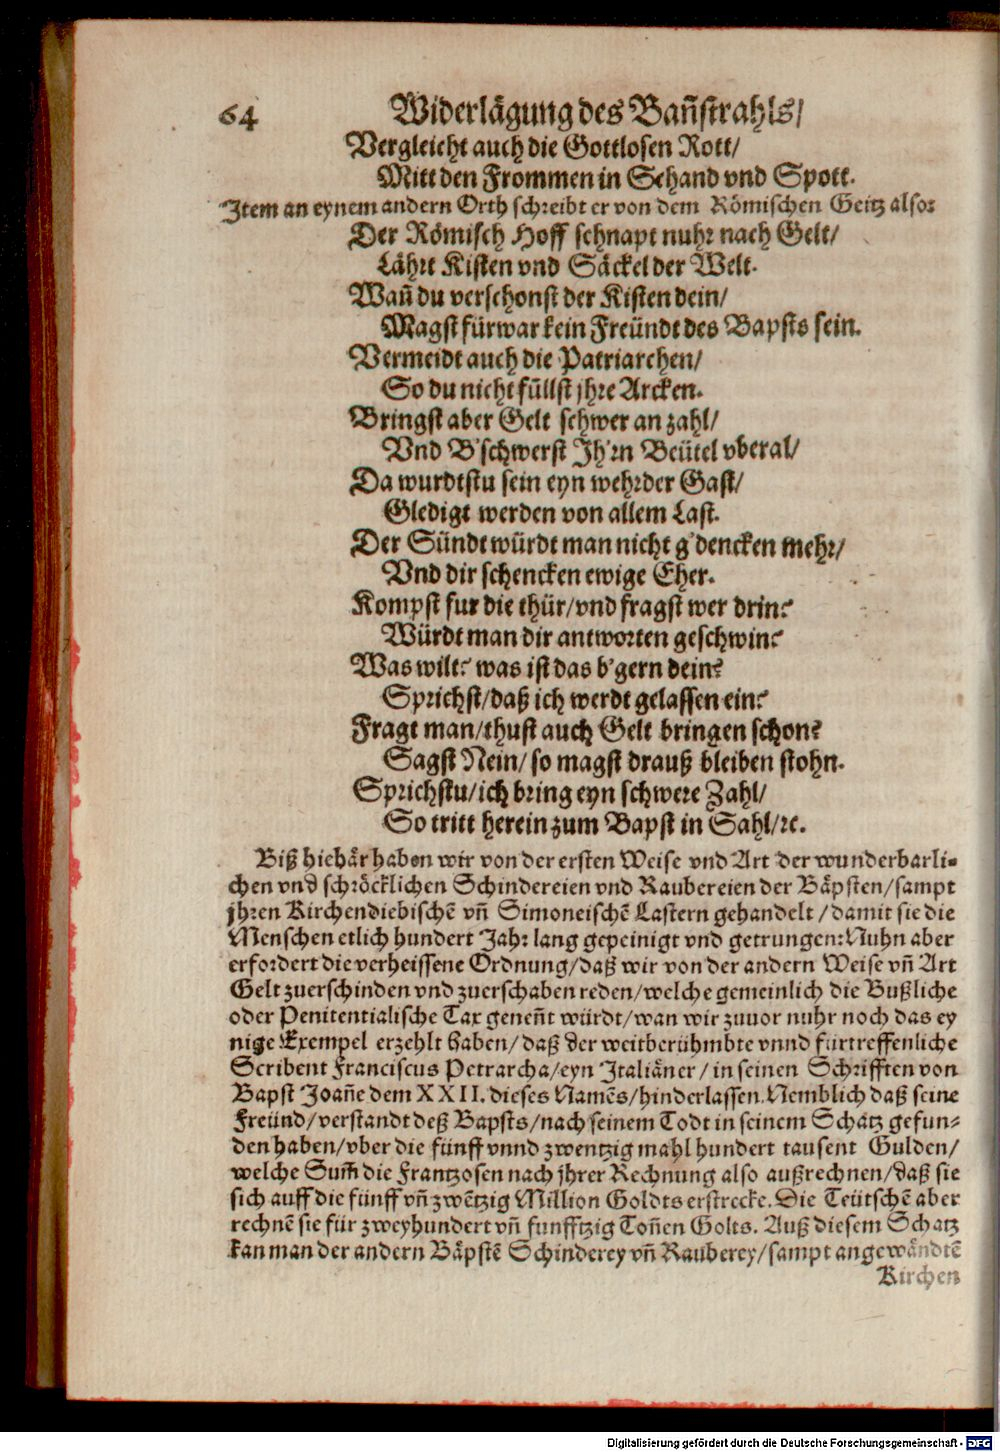 64 Widerlägung des Bañstrahls/
Vergleicht auch die Gottlosen Rott/
Mitt den Frommen in Schand vnd Spott.
Item an eynem andern Orth schreibt er von dem Römischen Geitz also:
Der Römisch Hoff schnapt nuhr nach Gelt/
Lährt Kisten vnd Säckel der Welt.
Wañ du verschonst der Kisten dein/
Magst fürwar kein Freündt des Bapsts sein.
Vermeidt auch die Patriarchen/
So du nicht füllst jhre Arcken.
Bringst aber Gelt schwer an zahl/
Vnd B'schwerst Jh'rn Beütel vberal/
Da wurdtstu sein eyn wehrder Gast/
Gledigt werden von allem Last.
Der Sündt würdt man nicht g'dencken mehr/
Vnd dir schencken ewige Eher.
Kompst fur die thür/vnd fragst wer drin?
Würdt man dir antworten geschwin?
Was wilt? was ist das b'gern dein?
Sprichst/daß ich werdt gelassen ein?
Fragt man/thust auch Gelt bringen schon?
Sagst Nein/ so magst drauß bleiben stohn.
Sprichstu/ich bring eyn schwere Zahl/
So tritt herein zum Bapst in Sahl/ꝛc.
Biß hiehär haben wir von der ersten Weise vnd Art der wunderbarli-
chen vnd schröcklichen Schindereien vnd Raubereien der Bäpsten/sampt
jhren Kirchendiebischē vñ Simoneischē Lastern gehandelt/damit sie die
Menschen etlich hundert Jahr lang gepeinigt vnd getrungen: Nuhn aber
erfordert die verheissene Ordnung/daß wir von der andern Weise vñ Art
Gelt zuerschinden vnd zuerschaben reden/welche gemeinlich die Bußliche
oder Penitentialische Tax geneñt würdt/wan wir zuuor nuhr noch das ey
nige Exempel erzehlt haben/daß der weitberühmbte vnnd fürtreffenliche
Scribent Franciscus Petrarcha/eyn Italiäner/in seinen Schrifften von
Bapst Joañe dem XXII. dieses Namēs/hinderlassen. Nemblich daß seine
Freünd/verstandt deß Bapsts/nach seinem Todt in seinem Schatz gefun-
den haben/vber die fünff vnnd zwentzig mahl hundert tausent Gulden/
welche Sum̃ die Frantzosen nach jhrer Rechnung also außrechnen/daß sie
sich auff die fünff vñ zwētzig Million Goldts erstrecke. Die Teütschē aber
rechnē sie für zweyhundert vñ funfftzig Toñen Golts. Auß diesem Schatz
kan man der andern Bäpstē Schinderey vñ Rauberey/sampt angewändtē
Kirchen
Digitalisierung gefördert durch die Deutsche Forschungsgemeinschaft - DFG